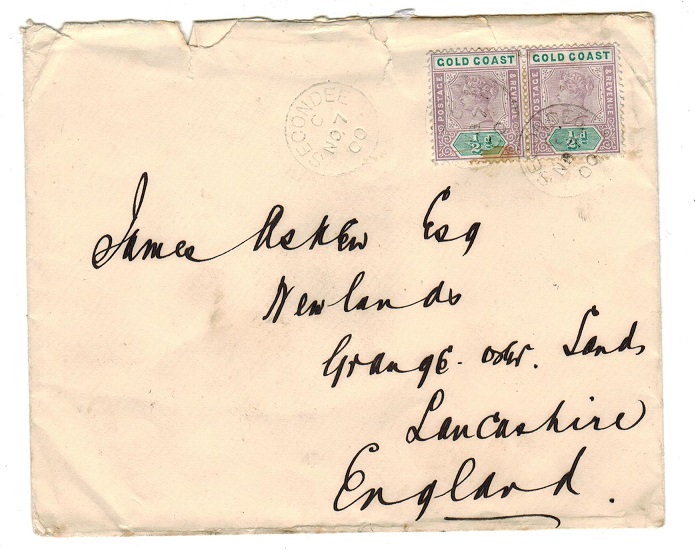 GOLD COAST GOLD COAST
POSTAGE & REVENUE POSTAGE & REVENUE
½d ½d
SECONDEE
C
NO 7
00
James Askew Esq
Newlands
Grange-over-Sands
Lancashire
England.